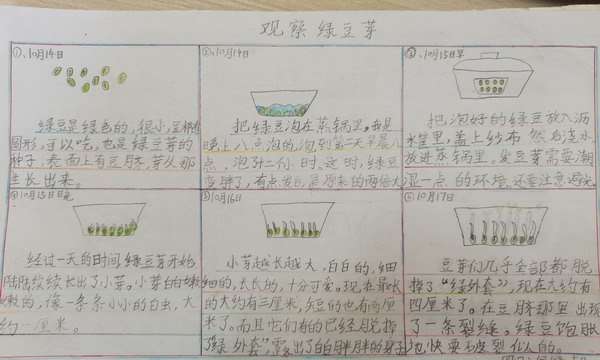 观察绿豆芽
①、10月14日
绿豆是绿色的，很小，是椭
圆形，可以吃，也是绿豆芽的
种子，表面上有豆脐，芽从那
生长出来。
②、10月14日
把绿豆泡在蒸锅里，我是
晚上八点泡的，泡到第二天早晨八
点，泡12个小时，这时，绿豆
变胖了，有点发白，是原来的两倍大
③、10月15日早
把泡好的绿豆放入沥
水筐里，盖上纱布，然后浇水
放进蒸锅里。发豆芽需要潮
湿一点的环境，还要注意避光
④10月15日晚
经过一天的时间，绿豆芽开始
陆陆续续长出了小芽，小芽白白嫩
嫩的，像一条条小小的白虫，大
约一厘米。
⑤10月16日
小芽越长越大，白白的，细
细的，长长的，十分可爱。现在最长
的大约有三厘米，矮的也有两厘
米了。而且它们有的已经脱掉
了"绿外套"，露出了白胖胖的身子
⑥、10月17日
豆芽们几乎全部都脱
掉了"绿外套"，现在大约有
四厘米了。在豆脐那里出现
了一条裂缝。绿豆饱胀
地快要破裂似的。